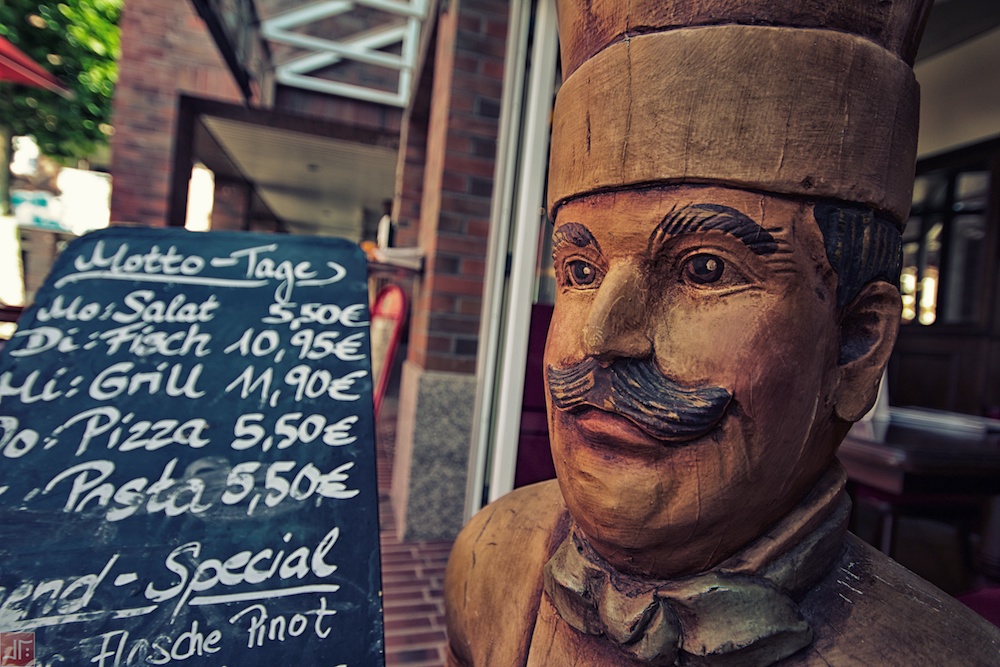 Motto-Tage
Mo: Salat 5,50€
Di: Fisch 10,95€
Mi: Grill 11,90€
Do: Pizza 5,50€
Pasta 5,50€
end-Special
Flasche Pinot